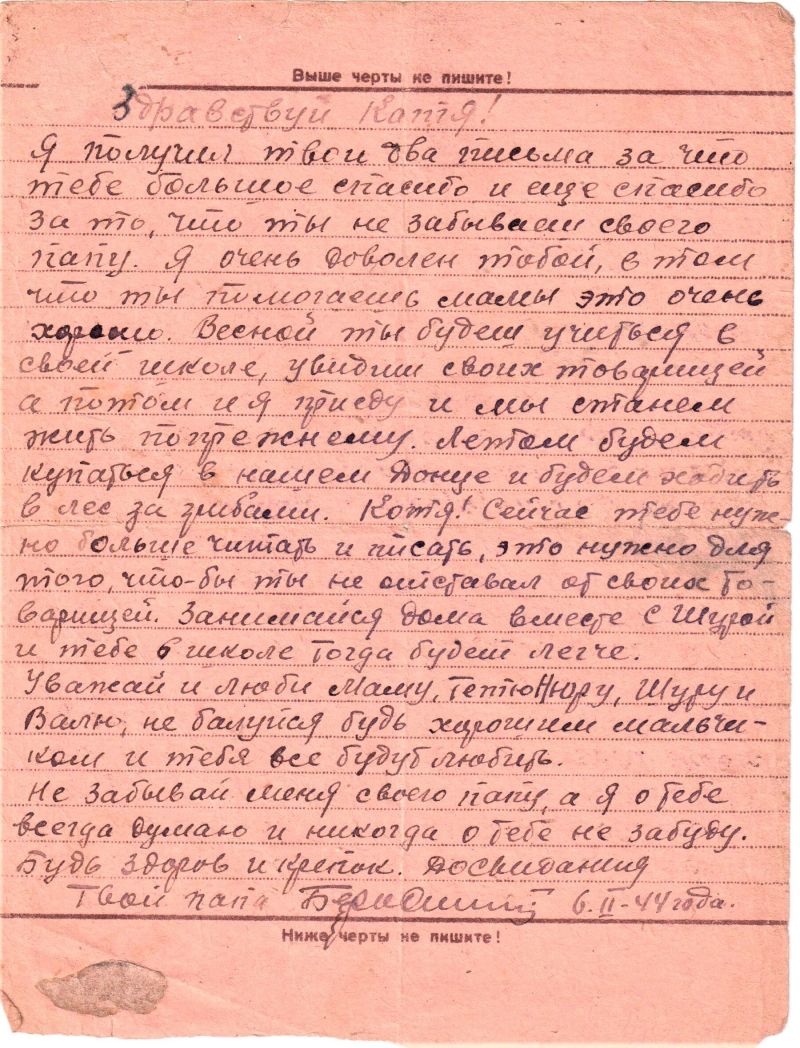 Выше черты не пишите!
Здравствуй Котя!
Я получил твои два письма за что
тебе большое спасибо и еще спасибо
за то, что ты не забываеш своего
папу. Я очень доволен тобой, в том
что ты помогаешь мамы это очень
хорошо. Весной ты будеш учиться в
своей школе, увидиш своих товарищей
а потом и я приеду и мы станем
жить попрежнему. Летом будем
купаться в нашем Донце и будем ходить
в лес за грибами. Котя! Сейчас тебе нуж-
но больше читать и писать, это нужно для
того, что-бы ты не отставал от своих то-
варищей. Занимайся дома вместе с Шурой
и тебе в школе тогда будет легче.
Уважай и люби маму, тетю Нюру, Шуру и
Валю, не балуйся будь хорошим мальчи-
ком и тебя все будут любить.
Не забывай меня своего папу, а я о тебе
всегда думаю и никогда о тебе не забуду.
Будь здоров и крепок. Досвидания
Твой папа 6.II-44 года.
Ниже черты не пишите!